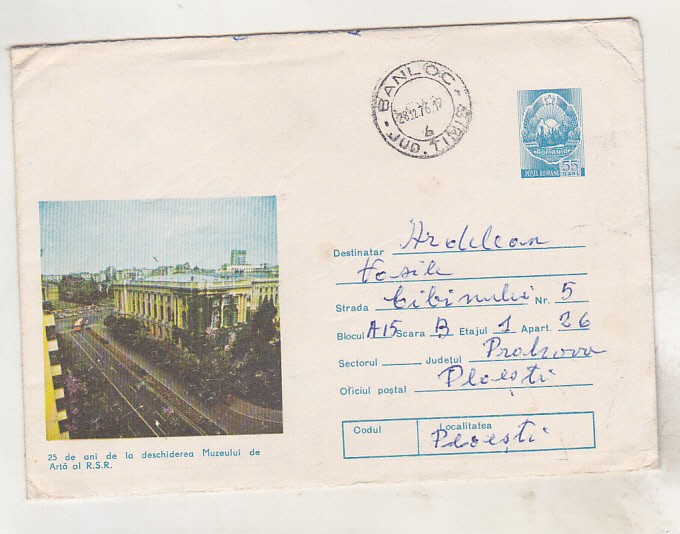 BANLOC
28.12.76.19
6
JUD. TIMIȘ
POSTA ROMANA 55 BANI
Destinatar Ardelean
Vasile
Strada Cibinului Nr. 5
Blocul A15 Scara B Etajul 1 Apart. 26
Sectorul Județul Prahova
Oficiul poștal Ploești
Codul Localitatea
Ploești
25 de ani de la deschiderea Muzeului de
Artă al R.S.R.